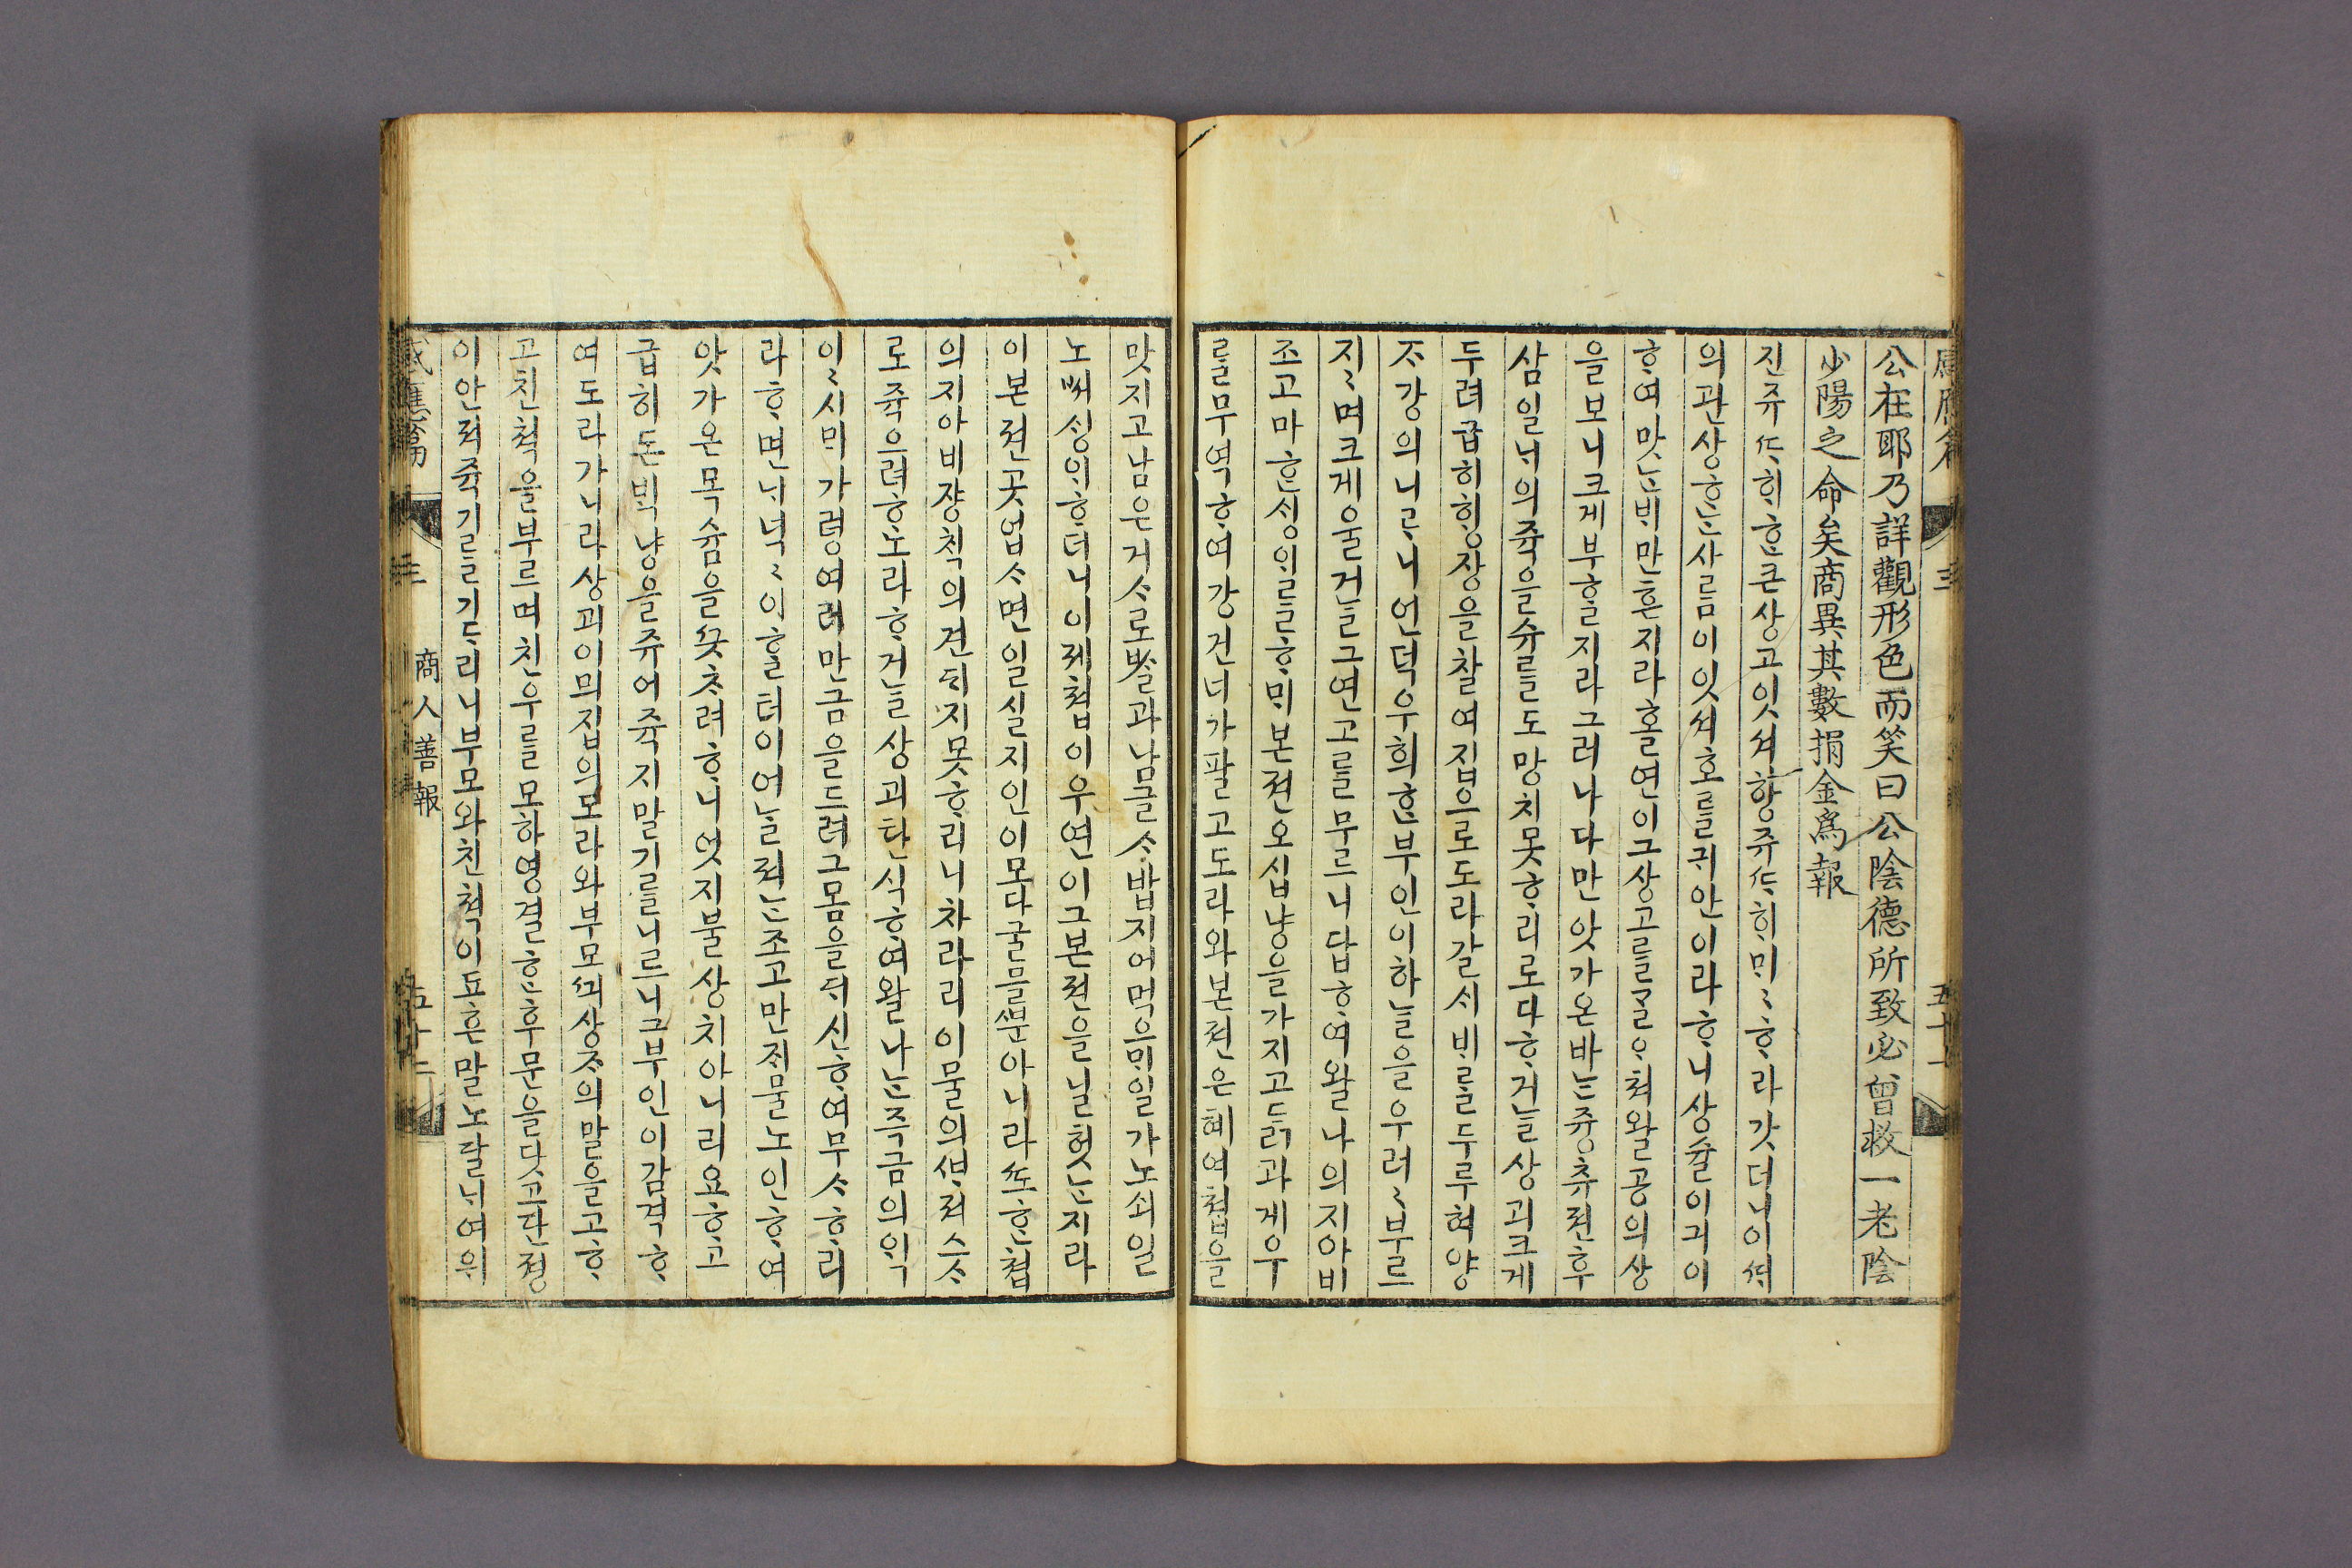 公在耶乃詳觀形色而笑曰公陰德所致必曾救一老陰
少陽之命矣商異其數捐金爲報
진쥬ᄯᅡ희ᄒᆞᆫ큰상고잇셔항쥬ᄯᅡ희ᄆᆡᄆᆡᄒᆞ라갓더니이ᄯᅢ
의관상ᄒᆞᄂᆞᆫ사ᄅᆞᆷ이잇셔호를귀안이라ᄒᆞ니상슐이긔이
ᄒᆞ여맛ᄂᆞᆫᄇᆡ만흔지라홀연이그상고를ᄀᆞᄅᆞ쳐왈공의상
을보니크게부ᄒᆞᆯ지라그러나다만앗가온바ᄂᆞᆫ즁츄젼후
삼일ᄂᆡ의쥭을슈를도망치못ᄒᆞ리로다ᄒᆞ거ᄂᆞᆯ상괴크게
두려급히ᄒᆡᆼ장을찰여집으로도라갈ᄉᆡᄇᆡ를두루혀양
ᄌᆞ강의니르니언덕우희ᄒᆞᆫ부인이하ᄂᆞᆯ을우러러부르
지지며크게울거ᄂᆞᆯ그연고를무르니답ᄒᆞ여왈나의지아비
조고마ᄒᆞᆫᄉᆡᆼ의를ᄒᆞᄆᆡ본젼오십냥을가지고ᄃᆞᆰ과게우
를무역ᄒᆞ여강건너가팔고도라와본젼은혜여쳡을
맛지고남은거ᄉᆞ로ᄡᅳᆯ과남글ᄉᆞ밥지어먹으ᄆᆡ일가노쇠일
노ᄡᅥᄉᆡᆼ의ᄒᆞ더니이제쳡이우연이그본젼을닐헛ᄂᆞᆫ지라
이본젼곳업ᄉᆞ면일실지인이모다굴믈ᄲᅮᆫ아니라ᄯᅩᄒᆞᆫ쳡
의지아비쟝ᄎᆡᆨ의견ᄃᆡ지못ᄒᆞ리니차라리이물의ᄲᅡ져스ᄉᆞ
로쥭으려ᄒᆞ노라ᄒᆞ거ᄂᆞᆯ상괴탄식ᄒᆞ여왈나ᄂᆞᆫ즉금의ᄋᆡᆨ
이이시ᄆᆡ가령여러만금을드려그몸을ᄃᆡ신ᄒᆞ여무ᄉᆞᄒᆞ리
라ᄒᆞ면ᄂᆡ넉넉이ᄒᆞᆯ터이어ᄂᆞᆯ져ᄂᆞᆫ조고만ᄌᆡ물노인ᄒᆞ여
앗가온목슘을ᄭᅳᆺᄎᆞ려ᄒᆞ니엇지불상치아니리요ᄒᆞ고
급히돈ᄇᆡᆨ냥을쥬어쥭지말기를니르니그부인이감격ᄒᆞ
여도라가니라상괴이믜집의도라와부모ᄭᅴ상ᄌᆞ의말을고ᄒᆞ
고친쳑을부르며친우를모하영결ᄒᆞᆫ후문을닷고잔졍
이안져쥭기를기ᄃᆞ리니부모와친쳑이됴흔말노달ᄂᆡ여위
感應篇 三 商人善報 五十二